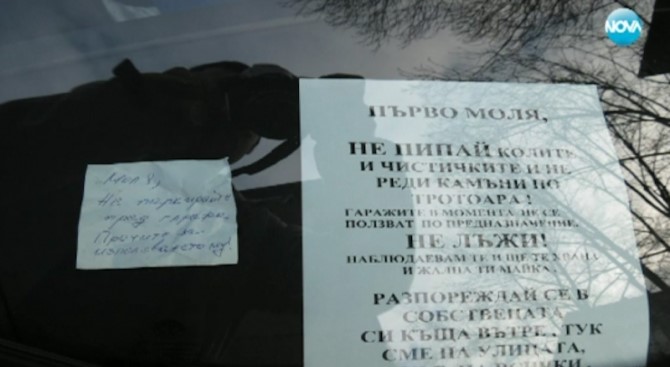 NOVA
Моля,
Не паркирайте
пред гаража.
Прочит
ПЪРВО МОЛЯ,
НЕ ПИПАЙ КОЛИТЕ
И ЧИСТИЧКИТЕ И НЕ
РЕДИ КАМЪНИ ПО
ТРОТОАРА!
ГАРАЖИТЕ В МОМЕНТА НЕ СЕ
ПОЛЗВАТ ПО ПРЕДНАЗНАЧЕНИЕ.
НЕ ЛЪЖИ!
НАБЛЮДАВАМ ТЕ И ЩЕ ТЕ ХВАНА
И ЖАЛНА ТИ МАЙКА.
РАЗПОРЕЖДАЙ СЕ В
СОБСТВЕНАТА
СИ КЪЩА ВЪТРЕ, ТУК
СМЕ НА УЛИЦАТА,